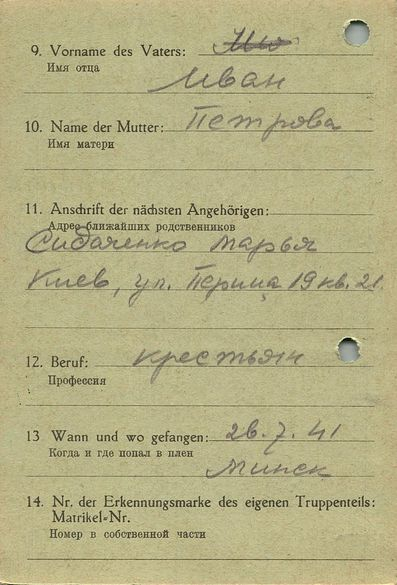 9. Vorname des Vaters:
Имя отца
Иван
10. Name der Mutter: Петрова
Имя матери
11. Anschrift der nächsten Angehörigen:
Адрес ближайших родственников
Сидаченко Марья
Киев, ул. 19 кв. 21.
12. Beruf: крестьян
Профессия
13 Wann und wo gefangen: 26.7.41
Когда и где попал в плен
Минск
14. Nr. der Erkennungsmarke des eigenen Truppenteils:
Matrikel-Nr.
Номер в собственной части